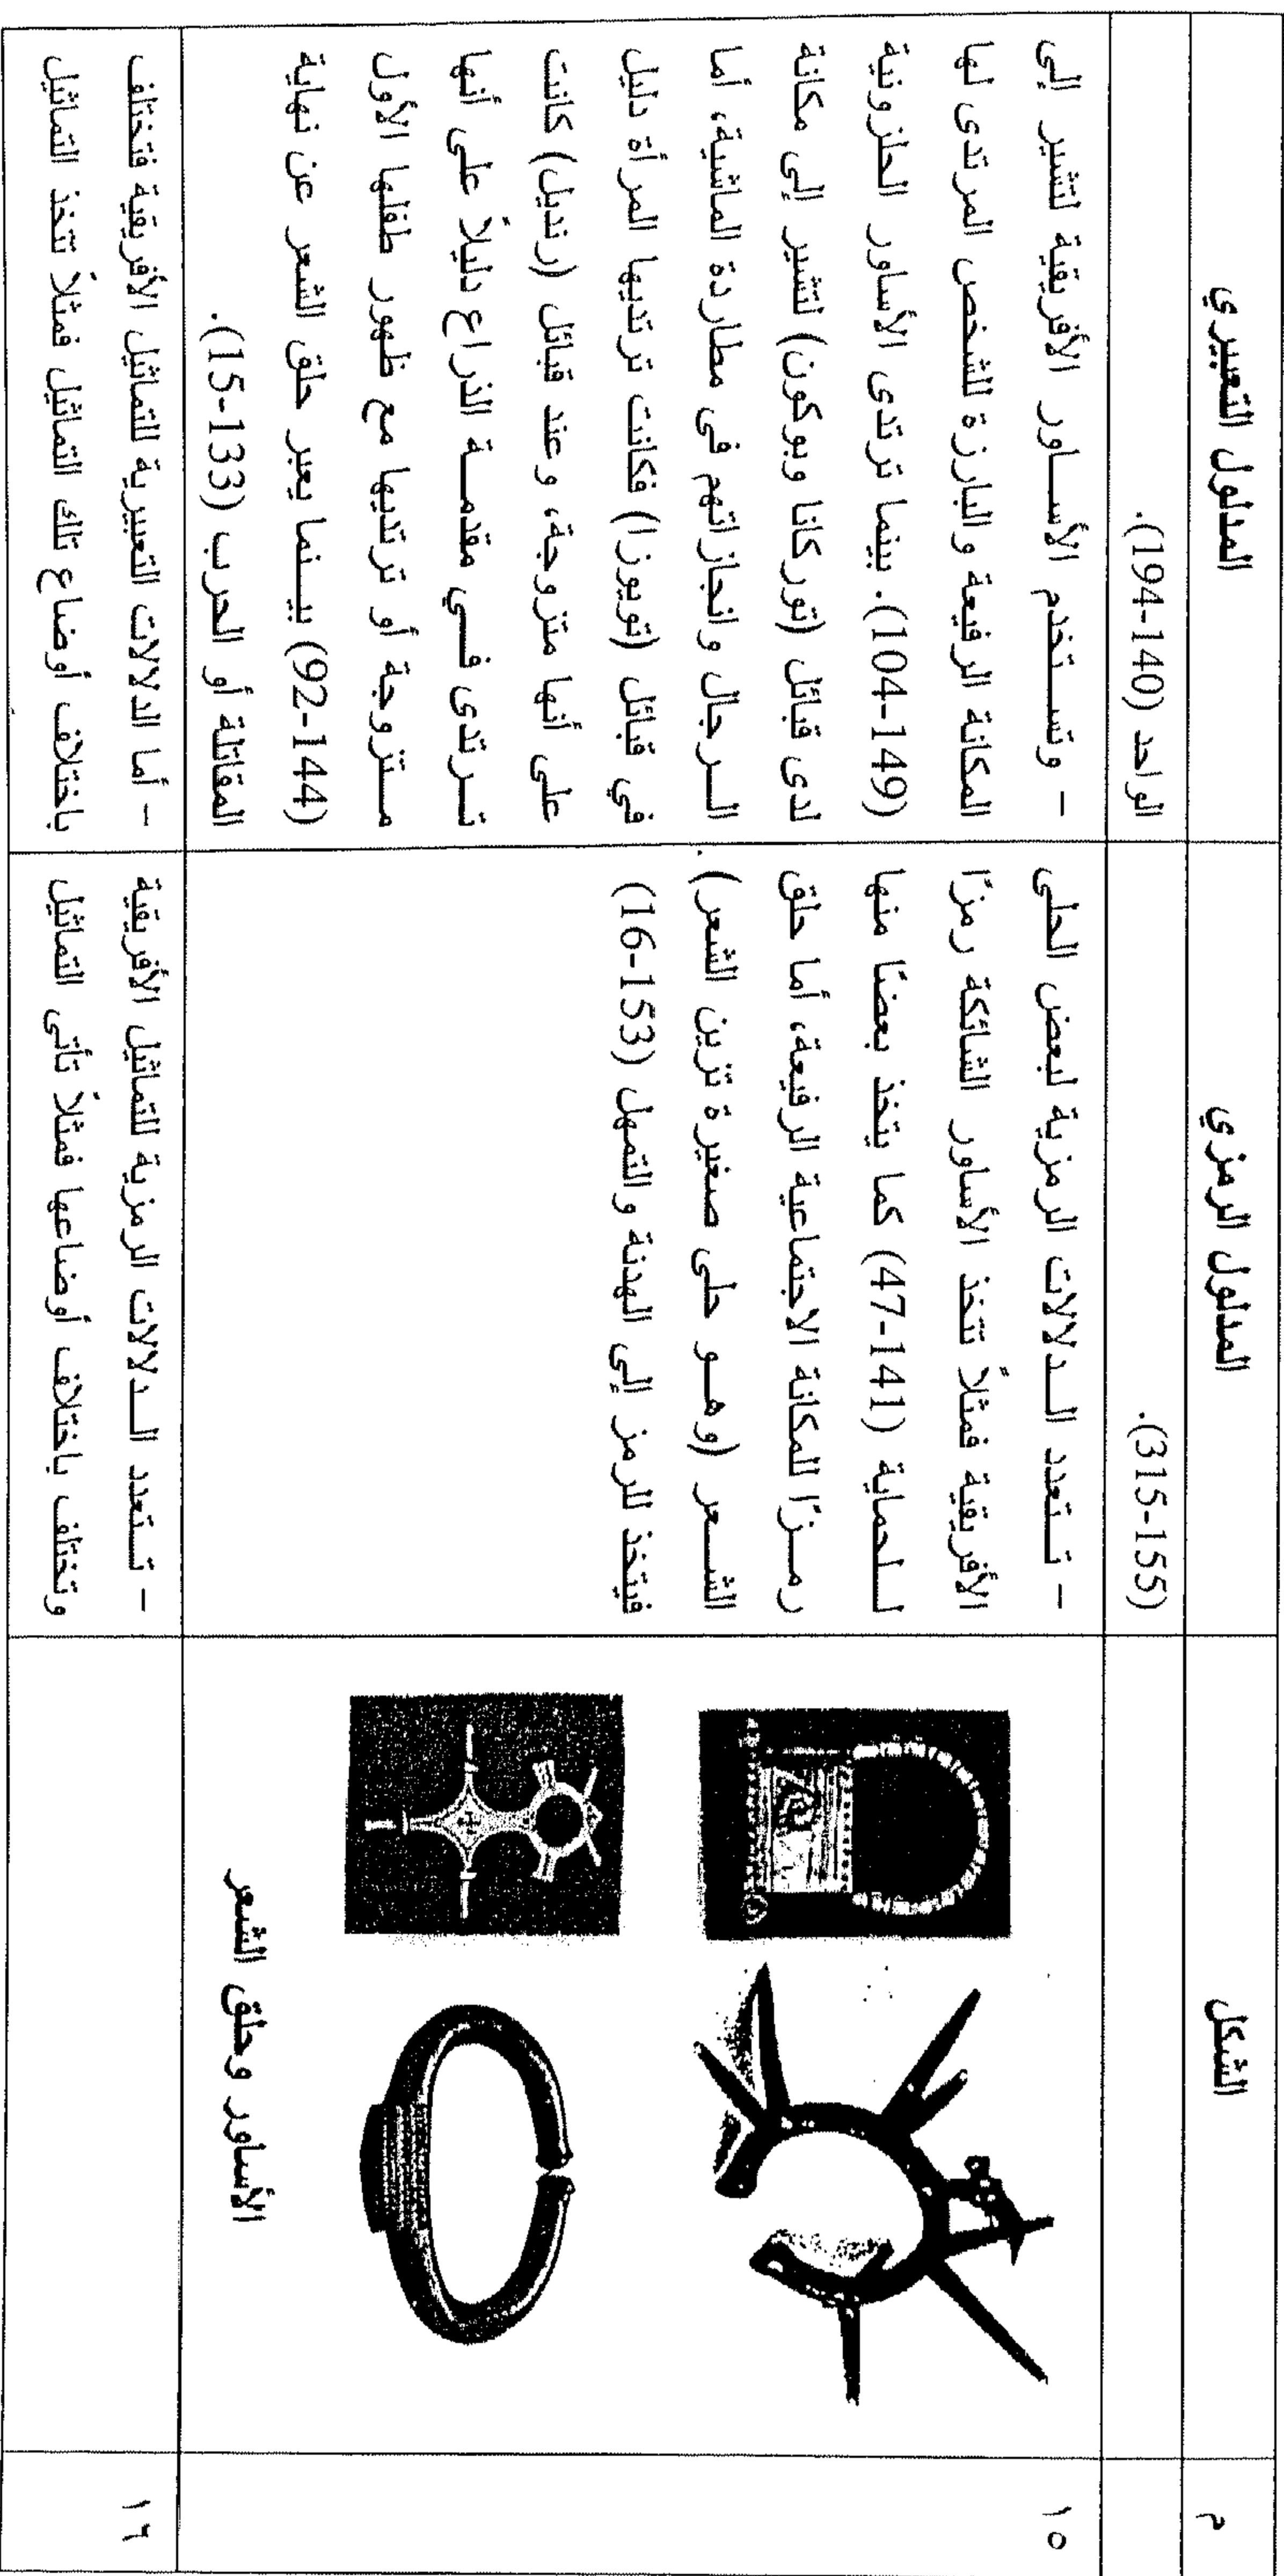 م
الشكل
المدلول الرمزي
المدلول التعبيري
(315-155).
الواحد (194-140).
١٥
الأساور وحلق الشعر
– تتعدد الدلالات الرمزية لبعض الحلى
الأفريقية فمثلاً تتخذ الأساور الشائكة رمزًا
للحماية (141-47) كما يتخذ بعضًا منها
رمزًا للمكانة الاجتماعية الرفيعة، أما حلق
الشعر (وهو حلى صغيرة تزين الشعر).
فيتخذ للرمز إلى الهدنة والتمهل (153-16)
– وتستخدم الأساور الأفريقية لتشير إلى
المكانة الرفيعة والبارزة للشخص المرتدى لها
(149-104). بينما ترتدى الأساور الحلزونية
لدى قبائل (توركانا وبوكون) لتشير إلى مكانة
الرجال وانجازاتهم فى مطاردة الماشية، أما
في قبائل (توبوزا) فكانت ترتديها المرأة دليل
على أنها متزوجة، وعند قبائل (رنديل) كانت
ترتدى في مقدمة الذراع دليلاً على أنها
متزوجة أو ترتديها مع ظهور طفلها الأول
(144-92) بينما يعبر حلق الشعر عن نهاية
المقاتلة أو الحرب (133-15).
١٦
– تتعدد الدلالات الرمزية للتماثيل الأفريقية
وتختلف باختلاف أوضاعها فمثلاً تأتى التماثيل
– أما الدلالات التعبيرية للتماثيل الأفريقية فتختلف
باختلاف أوضاع تلك التماثيل فمثلاً تتخذ التماثيل